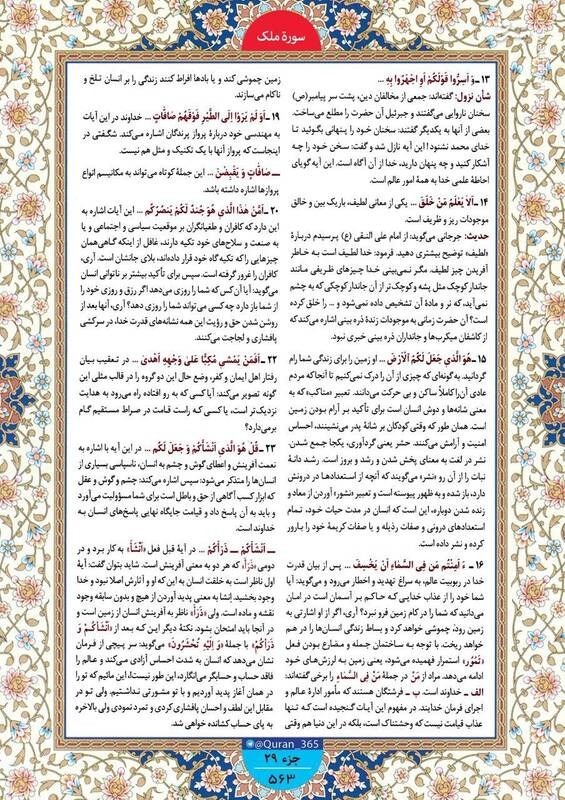 سورة ملک
۱۳ ـ وَ اَسِرُّوا قَوْلَکُمْ اَوِ اجْهَرُوا بِهِ ...
شأن نزول: گفته‌اند: جمعی از مخالفان دین، پشت سر پیامبر(ص)
سخنان ناروایی می‌گفتند و جبرئیل آن حضرت را مطلع می‌ساخت.
بعضی از آنها به یکدیگر گفتند: سخنان خود را پنهانی بگوئید تا
خدای محمد نشنود! این آیه نازل شد و گفت: سخن خود را چه
آشکار کنید و چه پنهان دارید، خدا از آن آگاه است. این آیه گویای
احاطة علمی خدا به همة امور عالم است.
۱۴ ـ اَلا یَعْلَمُ مَنْ خَلَقَ ... یکی از معانی لطیف، باریک بین و خالق
موجودات ریز و ظریف است.
حدیث: جرجانی می‌گوید: از امام علی النقی (ع) پرسیدم دربارة
«لطیف» توضیح بیشتری دهید. فرمود: خدا لطیف است به خاطر
آفریدن چیز لطیف، مگر نمی‌بینی خدا چیزهای ظریفی مانند
جاندار کوچک مثل پشه و کوچک‌تر از آن جاندار کوچکی که به چشم
نمی‌آید، که نر و مادة آن تشخیص داده نمی‌شود و ... را خلق کرده
است؟ آن حضرت زمانی به موجودات زندة ذره بینی اشاره می‌کند که
از کاشفان میکرب‌ها و جانداران ذره بینی خبری نبود.
۱۵ ـ هُوَ الَّذی جَعَلَ لَکُمُ الْاَرْضَ ... او زمین را برای زندگی شما رام
گردانید. به گونه‌ای که چیزی از آن را درک نمی‌کنیم تا آنجا که مردم
عادی آن را کاملاً ساکن و بی حرکت می‌دانند. تعبیر «مناکب» که به
معنی شانه‌ها و دوش انسان است برای تأکید بر آرام بودن زمین
است. همان طور که وقتی کودکان بر شانة پدر می‌نشینند، احساس
امنیت و آرامش می‌کنند. حشر یعنی گردآوری، یکجا جمع شدن.
نشر در لغت به معنای پخش شدن و رشد و بروز است. رشد دانة
نبات را از آن رو «نشر» می‌گویند که آنچه از استعدادها در درونش
دارد، باز شده و به ظهور پیوسته است و تعبیر «نشور» آوردن از معاد و
زنده شدن دوباره، این است که انسان در مدت حیات خود، تمام
استعدادهای درونی و صفات رذیله و یا صفات کریمة خود را بارور
کرده و نشر داده است.
۱۶ ـ ءَ اَمِنْتُم مَن فِی السَّماءِ اَنْ یَخْسِفَ ... پس از بیان قدرت
خدا در ربوبیت عالم، به سراغ تهدید و اخطار می‌رود و می‌گوید: آیا
شما خود را از عذاب خدایی که حاکم بر آسمان است در امان
می‌دانید که شما را در کام زمین فرو نبرد؟ آری، اگر از او اشارتی به
زمین رود، چموشی خواهد کرد و بساط زندگی انسان‌ها را در هم
خواهد ریخت. با توجه به ساختمان جمله و مضارع بودن فعل
«تَمُورُ» استمرار فهمیده می‌شود، یعنی زمین به لرزش‌های خود
ادامه می‌دهد. مراد از مَنْ در جملة مَنْ فِی السَّماءِ را برخی گفته‌اند:
الف ـ خداوند است. ب ـ فرشتگان هستند که مأمور ادارة عالم و
اجرای فرمان خدایند. در مفهوم این آیات گنجیده است که تنها
عذاب قیامت نیست که وحشتناک است، بلکه در این دنیا هم وقتی
زمین چموشی کند و یا بادها افراط کنند زندگی را بر انسان تلخ و
ناکام می‌سازند.
۱۹ ـ اَوَ لَمْ یَرَوْا اِلَی الطَّیْرِ فَوْقَهُمْ صَافَّاتٍ ... خداوند در این آیات
به مهندسی خود دربارة پرواز پرندگان اشاره می‌کند. شگفتی در
اینجاست که پرواز آنها با یک تکنیک و مثل هم نیست.
ـ صَافَّاتٍ وَ یَقْبِضْنَ ... این جملة کوتاه می‌تواند به مکانیسم انواع
پروازها اشاره داشته باشد.
۲۰ ـ اَمَّنْ هذَا الَّذی هُوَ جُنْدٌ لَکُمْ یَنصُرُکُم ... این آیات اشاره به
این دارد که کافران و طغیانگران بر موقعیت سیاسی و اجتماعی و یا
به صنعت و سلاح‌های خود تکیه دارند، غافل از اینکه گاهی همان
چیزهایی را که تکیه گاه خود قرار داده‌اند، بلای جانشان است. آری،
کافران را غرور گرفته است. سپس برای تأکید بیشتر بر ناتوانی انسان
می‌گوید: آیا آن کس که شما را روزی می‌دهد اگر رزق و روزی خود را
از شما باز دارد چه کسی می‌تواند شما را روزی دهد؟ آری، آنها بعد از
روشن شدن حق و رؤیت این همه نشانه‌های قدرت خدا، در سرکشی
پافشاری و لجاجت می‌کنند.
۲۲ ـ اَفَمَنْ یَمْشی مُکِبًّا عَلی وَجْهِهِ اَهْدی ... در تعقیب بیان
رفتار اهل ایمان و کفر، وضع حال این دو گروه را در قالب مثلی این
گونه تصویر می‌کند: آیا کسی که به رو افتاده راه می‌رود به هدایت
نزدیک‌تر است، یا کسی که راست قامت در صراط مستقیم گام
برمی‌دارد؟
۲۳ ـ قُلْ هُوَ الَّذی اَنْشَاَکُمْ وَ جَعَلَ لَکُم ... در این آیه با اشاره به
نعمت آفرینش و اعطای گوش و چشم به انسان، ناسپاسی بسیاری از
انسان‌ها را متذکر می‌شود؛ سپس اشاره می‌کند: چشم و گوش و عقل
که ابزار کسب آگاهی از حق و باطل است برای شما مسؤولیت می‌آورد
و باید به آن پاسخ داد و قیامت جایگاه نهایی پاسخ‌های انسان به
خداوند است.
ـ اَنْشَاَکُمْ ـ ذَرَاَکُمْ ... در آیة قبل فعل «اَنْشَأَ» به کار برد و در
دومی «ذَرَأَ» که هر دو به معنی آفرینش است. شاید بتوان گفت: آیة
اول ناظر است به خلقت انسان به این که او و آثارش اصلا نبود و خدا
وجود بخشید. اِنشا به معنی پدید آوردن از هیچ و بدون سابقه وجود
نقشه و ماده است. ولی «ذَرَأَ» ناظر به آفرینش انسان از زمین است و
در آنجا باید امتحان بشود. نکتة دیگر این که بعد از «اَنْشَاَکُمْ وَ
ذَرَاَکُمْ» با جملة «وَ اِلَیْهِ تُحْشَرُونَ» می‌گوید: سر پیچی از فرمان
نشان می‌دهد که انسان به شدت احساس آزادی می‌کند و عالم را
فاقد حساب و حسابگر می‌انگارد، این طور نیست، این مائیم که تو را
در همان آغاز پدید آوردیم و با تو مشورتی نداشتیم. ولی تو در
مقابل این لطف و احسان پافشاری کردی و تمرد نمودی ولی بالاخره
به پای حساب کشانده خواهی شد.
@Quran_365
جزء ۲۹
۵۶۳